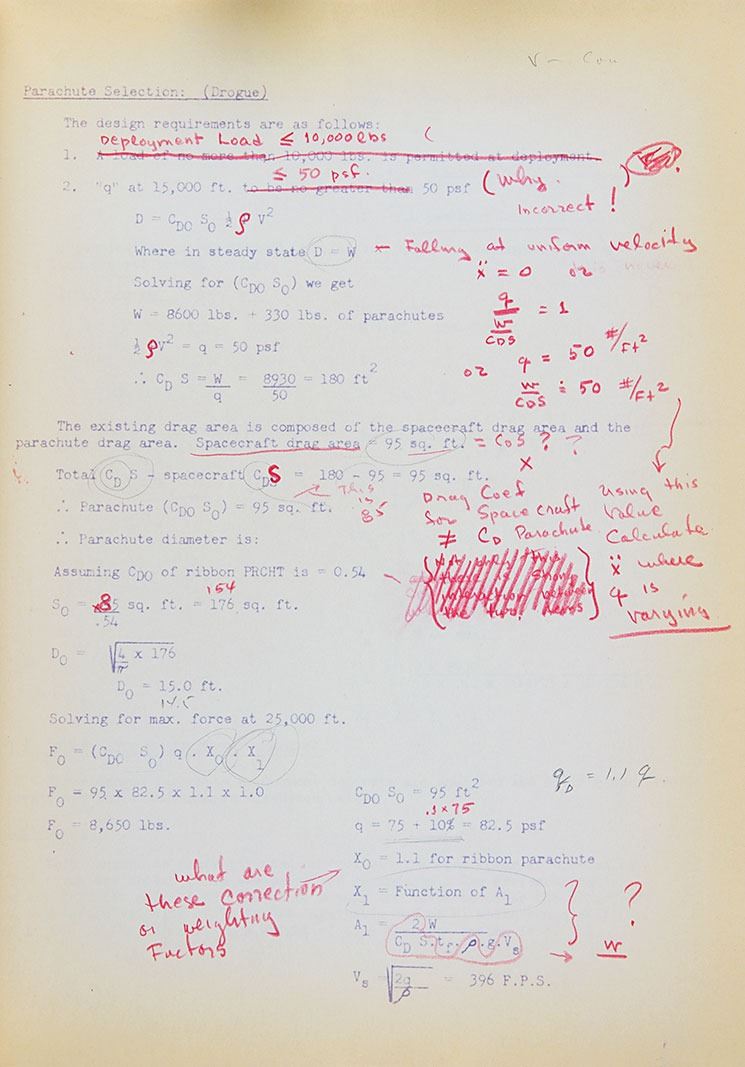 V - Con
Parachute Selection: (Drogue)
The design requirements are as follows:
Deployment Load ≤ 10,000 lbs (
1. A load of no more than 10,000 lbs. is permitted at deployment.
≤ 50 psf.
2. "q" at 15,000 ft. to be no greater than 50 psf (Why.
Incorrect !
)
D = C_DO S_O ½ρ V²
Where in steady state D = W ← Falling at uniform velocity
ẍ = 0 or
Solving for (C_DO S_O) we get
W = 8600 lbs. + 330 lbs. of parachutes
q / (W/CDS) = 1
½ρV² = q = 50 psf
or q = 50 #/Ft²
∴ C_D S = W/q = 8930/50 = 180 ft²
W/CDS ≐ 50 #/Ft²
The existing drag area is composed of the spacecraft drag area and the
parachute drag area. Spacecraft drag area = 95 sq. ft. = CDS ? ?
x
Total C_D S - spacecraft C_D S = 180 - 95 = 95 sq. ft.
This
is
85
∴ Parachute (C_DO S_O) = 95 sq. ft.
Drag Coef
for Space craft
≠ CD Parachute
Using this
Value
Calculate
ẍ where
q is
varying
∴ Parachute diameter is:
Assuming C_DO of ribbon PRCHT is = 0.54
154
S_O = 85/.54 sq. ft. = 176 sq. ft.
D_O = √(4/π x 176)
D_O = 15.0 ft.
14.5
Solving for max. force at 25,000 ft.
F_O = (C_DO S_O) q . X_O . X_1
q_D = 1.1 q.
F_O = 95 x 82.5 x 1.1 x 1.0
C_DO S_O = 95 ft²
.1 x 75
F_O = 8,650 lbs.
q = 75 + 10% = 82.5 psf
X_O = 1.1 for ribbon parachute
what are
these correction
or weighting
Factors
X_1 = Function of A_1
?
A_1 = 2 W / C_D S.t_f.ρ.g.V_s
→ W
V_s = √(2q/ρ) = 396 F.P.S.